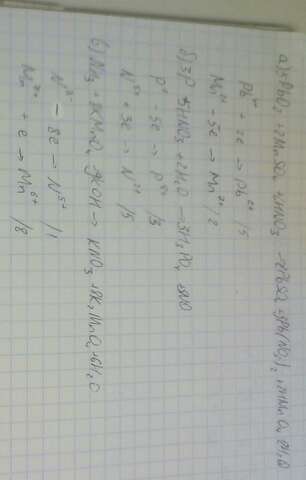 а) 5PbO₂ + 2MnSO₄ + 6HNO₃ → 2PbSO₄ + 3Pb(NO₃)₂ + 2HMnO₄ + 2H₂O
Pb⁴⁺ + 2e → Pb²⁺ /5
Mn²⁺ - 5e → Mn⁷⁺ /2
б) 3P + 5HNO₃ + 2H₂O → 3H₃PO₄ + 5NO
P⁰ - 5e → P⁵⁺ /3
N⁵⁺ + 3e → N²⁺ /5
KOH → KNO₃ + 8K₂MnO₄ + 6H₂O
N³⁻ - 8e → N⁵⁺ /1
Mn⁷⁺ + e → Mn⁶⁺ /8